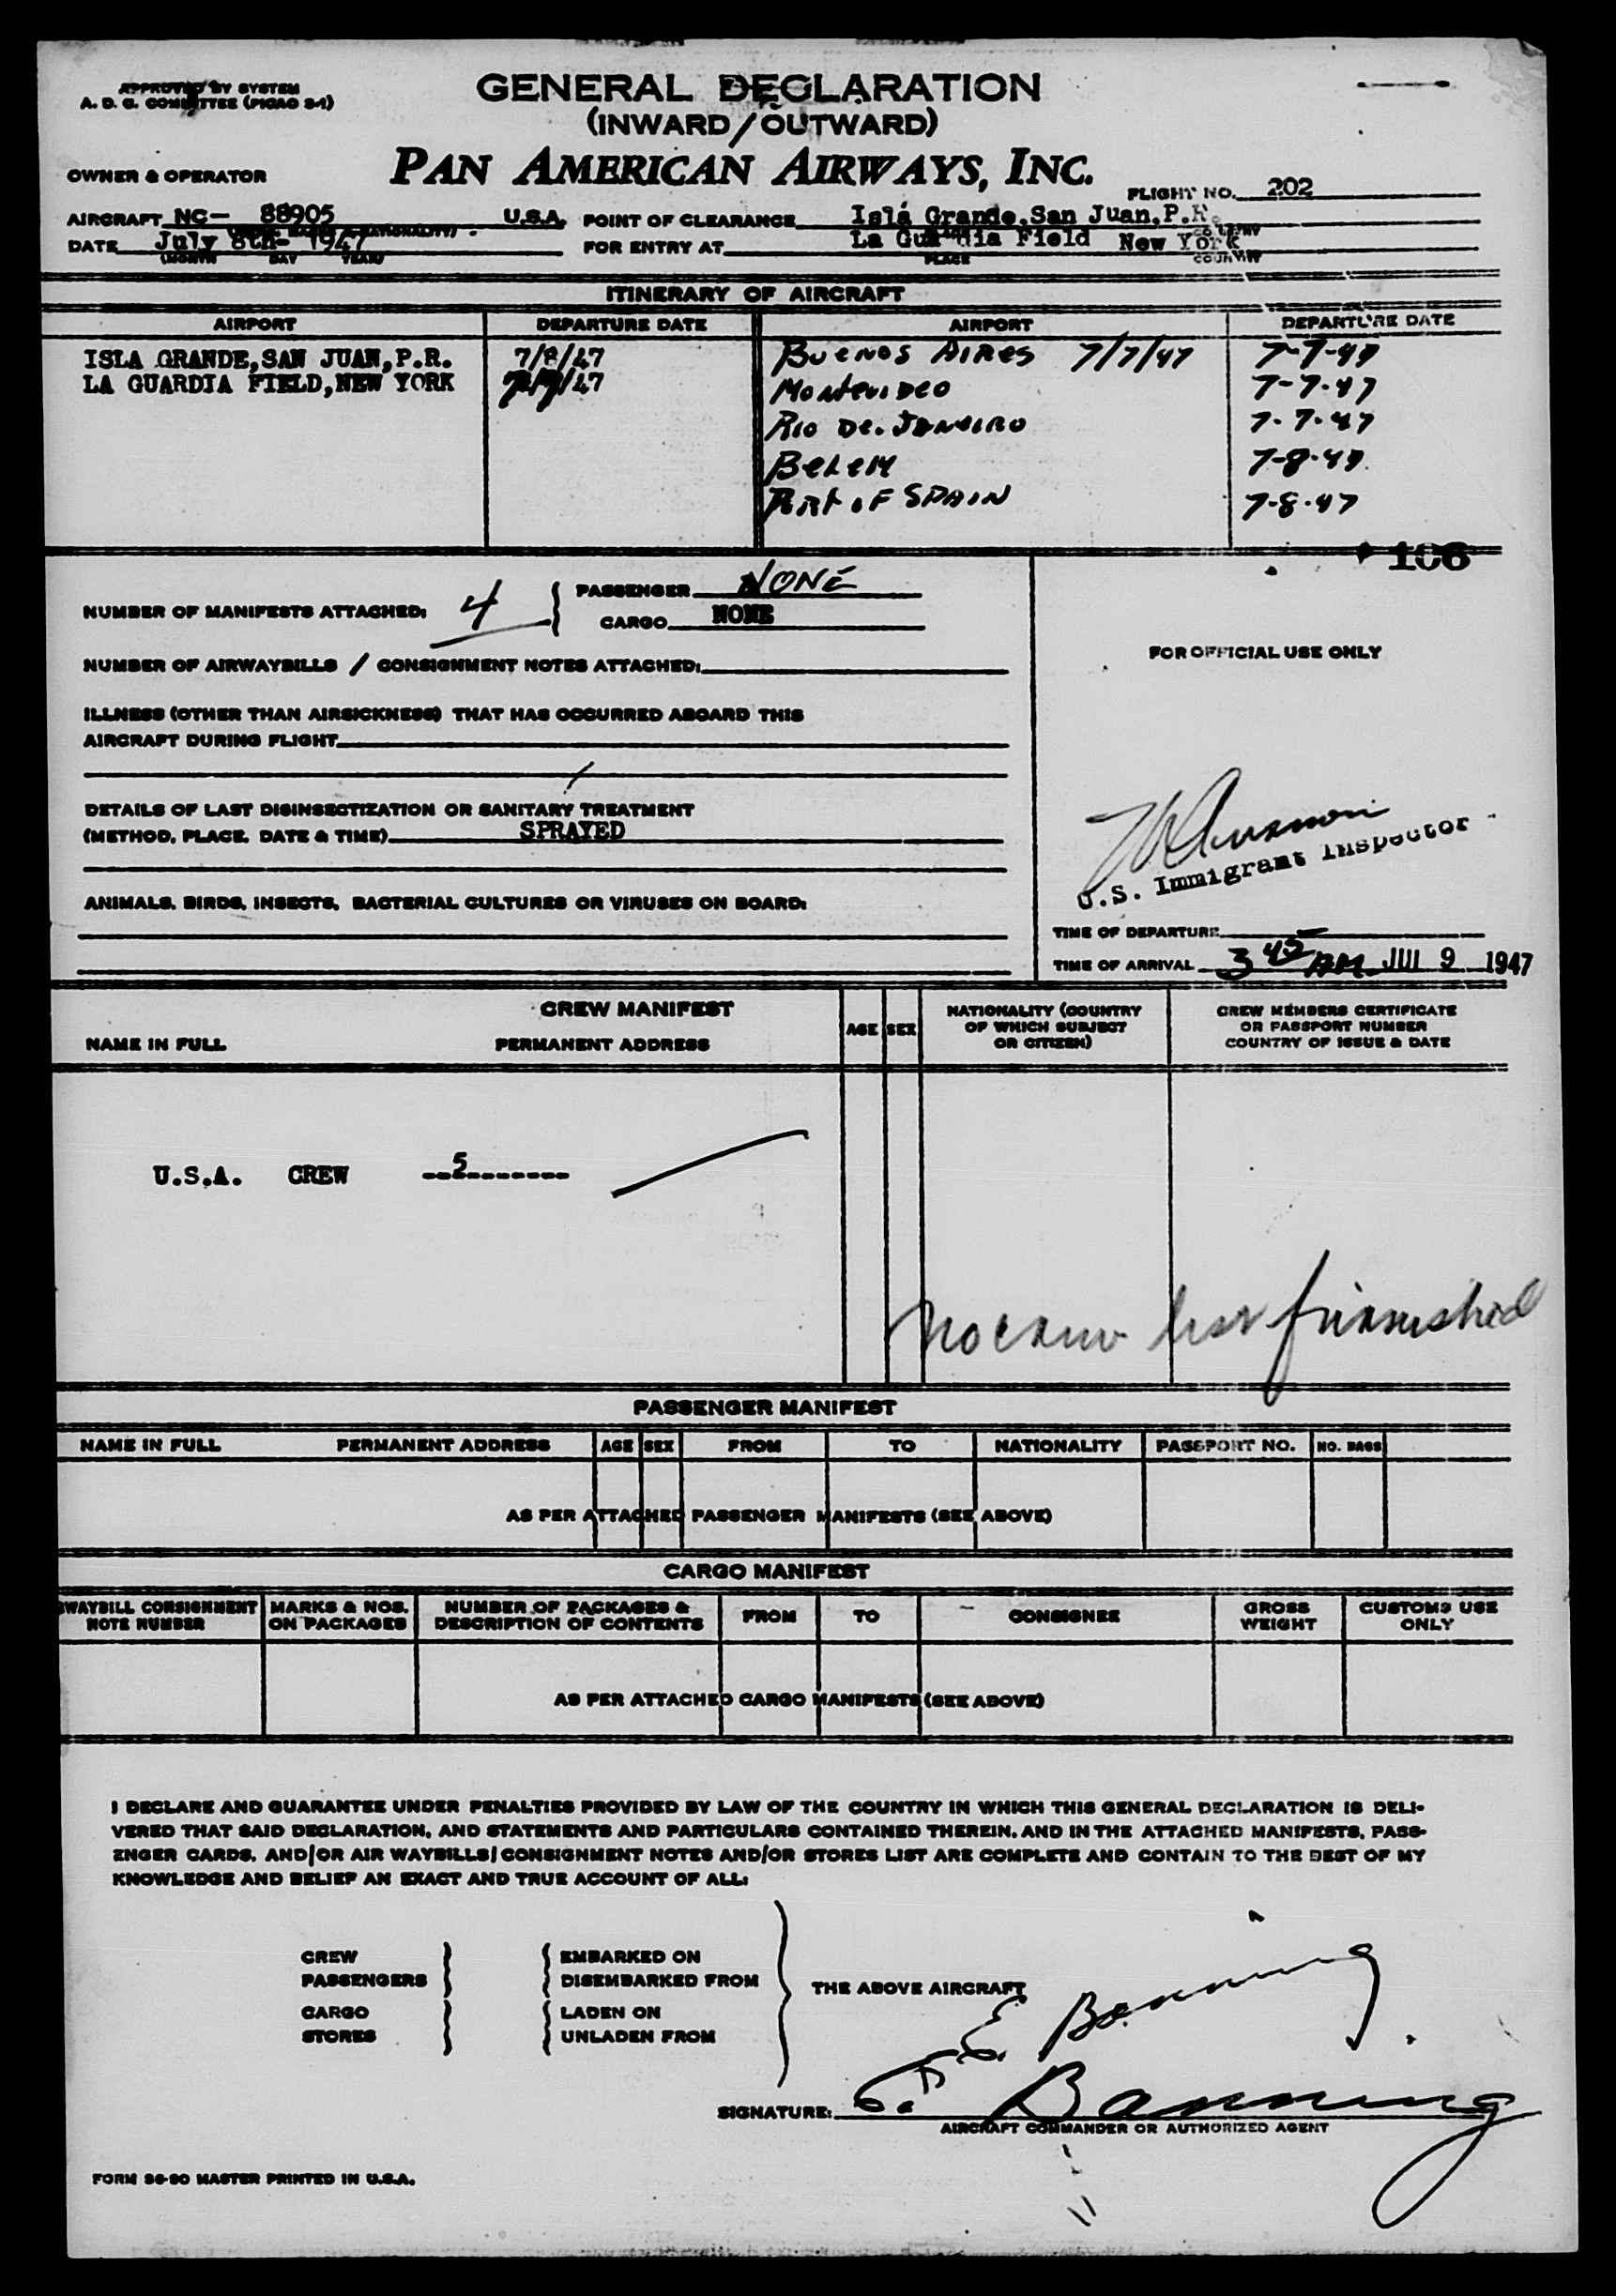 APPROVED BY SYSTEM
A. D. C. COMMITTEE (PICAO 2-1)
GENERAL DECLARATION
(INWARD/OUTWARD)
OWNER & OPERATOR
PAN AMERICAN AIRWAYS, INC.
FLIGHT NO. 202
AIRCRAFT NC- 88905 U.S.A. POINT OF CLEARANCE Isla Grande, San Juan, P.R.
DATE July 8th- 1947 FOR ENTRY AT La Guardia Field New York
(MONTH DAY YEAR) PLACE COUNTRY
ITINERARY OF AIRCRAFT
AIRPORT DEPARTURE DATE AIRPORT DEPARTURE DATE
ISLA GRANDE, SAN JUAN, P.R. 7/8/47 BUENOS AIRES 7/7/47 7-7-47
LA GUARDIA FIELD, NEW YORK /47 MONTEVIDEO 7-7-47
RIO DE. JANEIRO 7-7-47
BELEM 7-8-47
PORT OF SPAIN 7-8-47
106
NUMBER OF MANIFESTS ATTACHED: 4 PASSENGER NONE
CARGO NONE
FOR OFFICIAL USE ONLY
NUMBER OF AIRWAYBILLS / CONSIGNMENT NOTES ATTACHED:
ILLNESS (OTHER THAN AIRSICKNESS) THAT HAS OCCURRED ABOARD THIS
AIRCRAFT DURING FLIGHT
DETAILS OF LAST DISINSECTIZATION OR SANITARY TREATMENT
(METHOD, PLACE, DATE & TIME) SPRAYED
U.S. Immigrant Inspector
ANIMALS, BIRDS, INSECTS, BACTERIAL CULTURES OR VIRUSES ON BOARD:
TIME OF DEPARTURE
TIME OF ARRIVAL 3 45 AM JUL 9 1947
CREW MANIFEST
NAME IN FULL PERMANENT ADDRESS AGE SEX NATIONALITY (COUNTRY OF WHICH SUBJECT OR CITIZEN) CREW MEMBERS CERTIFICATE OR PASSPORT NUMBER COUNTRY OF ISSUE & DATE
U.S.A. CREW --5--------
No crew list furnished
PASSENGER MANIFEST
NAME IN FULL PERMANENT ADDRESS AGE SEX FROM TO NATIONALITY PASSPORT NO. NO. BAGS
AS PER ATTACHED PASSENGER MANIFESTS (SEE ABOVE)
CARGO MANIFEST
WAYBILL CONSIGNMENT NOTE NUMBER MARKS & NOS. ON PACKAGES NUMBER OF PACKAGES & DESCRIPTION OF CONTENTS FROM TO CONSIGNEE GROSS WEIGHT CUSTOMS USE ONLY
AS PER ATTACHED CARGO MANIFESTS (SEE ABOVE)
I DECLARE AND GUARANTEE UNDER PENALTIES PROVIDED BY LAW OF THE COUNTRY IN WHICH THIS GENERAL DECLARATION IS DELI-
VERED THAT SAID DECLARATION, AND STATEMENTS AND PARTICULARS CONTAINED THEREIN, AND IN THE ATTACHED MANIFESTS, PASS-
ENGER CARDS, AND/OR AIR WAYBILLS/CONSIGNMENT NOTES AND/OR STORES LIST ARE COMPLETE AND CONTAIN TO THE BEST OF MY
KNOWLEDGE AND BELIEF AN EXACT AND TRUE ACCOUNT OF ALL:
CREW EMBARKED ON
PASSENGERS DISEMBARKED FROM THE ABOVE AIRCRAFT
CARGO LADEN ON
STORES UNLADEN FROM
E Banning
SIGNATURE: Banning
AIRCRAFT COMMANDER OR AUTHORIZED AGENT
FORM 36-90 MASTER PRINTED IN U.S.A.